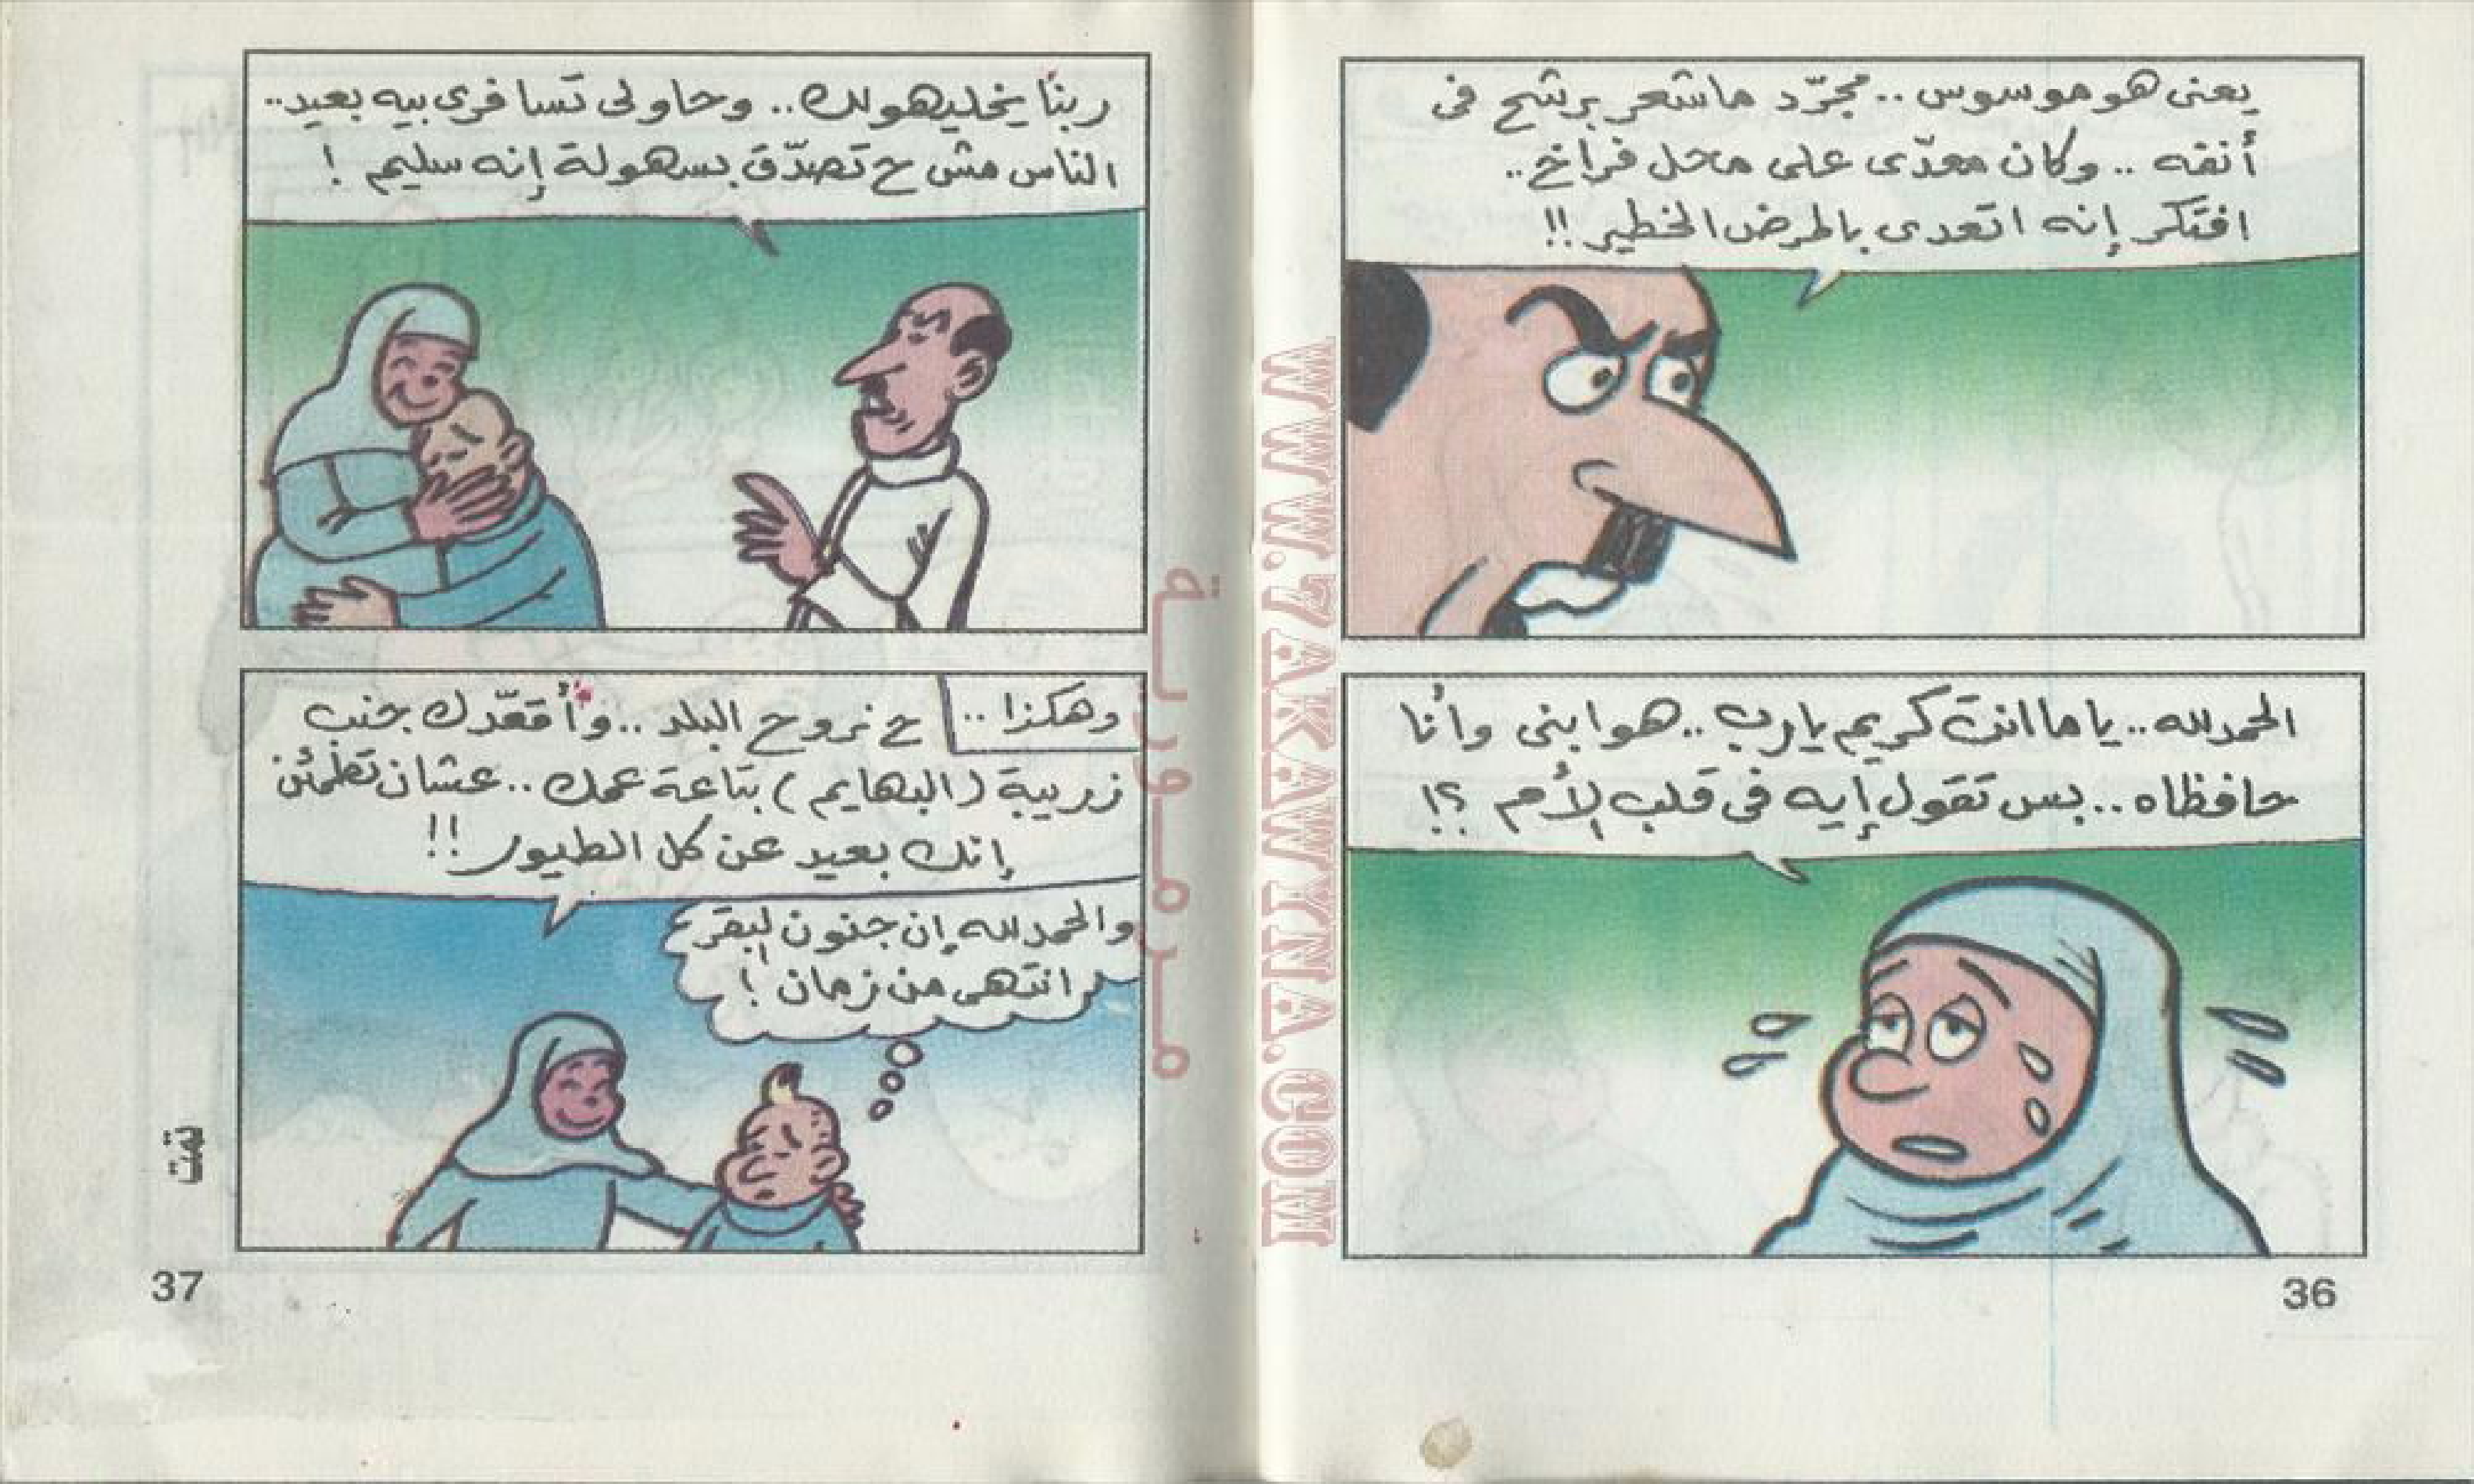 يعنى هو موسوس .. مجرّد ماشعر برشح فى
أنفه .. وكان معدّى على محل فراخ ..
افتكر إنه اتعدى بالمرض الخطير !!
الحمدلله .. ياما انت كريم يارب .. هو ابنى وأنا
حافظاه .. بس تقول إيه فى قلب الأم ؟!
36
ربنا يخليهولك .. وحاولى تسافرى بيه بعيد ..
الناس مش ح تصدّق بسهولة إنه سليم !
وهكذا ..
ح نروح البلد .. وأقعّدك جنب
زريبة (البهايم) بتاعة عمك .. عشان تطمئن
إنك بعيد عن كل الطيور !!
والحمدلله إن جنون البقر
انتهى من زمان !
تمت
37
WWW.7AKAWYNA.COM
مرمورية